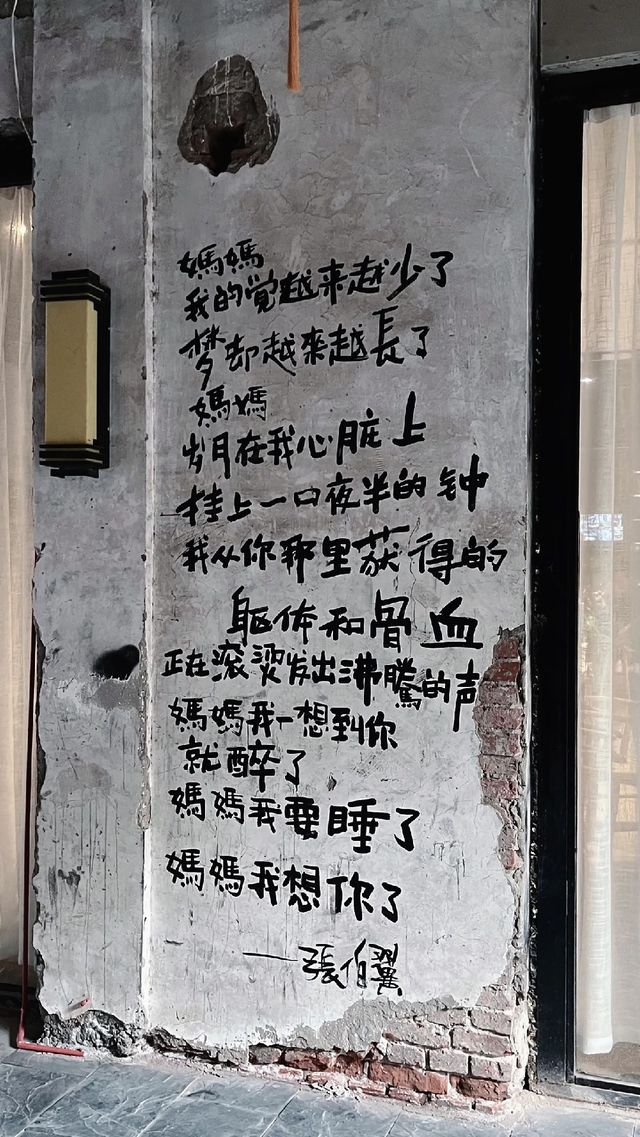 媽媽
我的觉越来越少了
梦却越来越長了
媽媽
岁月在我心脏上
挂上一口夜半的钟
我从你那里获得的
躯体和骨血
正在滚烫发出沸騰的声
媽媽我一想到你
就醉了
媽媽我要睡了
媽媽我想你了
——張伯翼